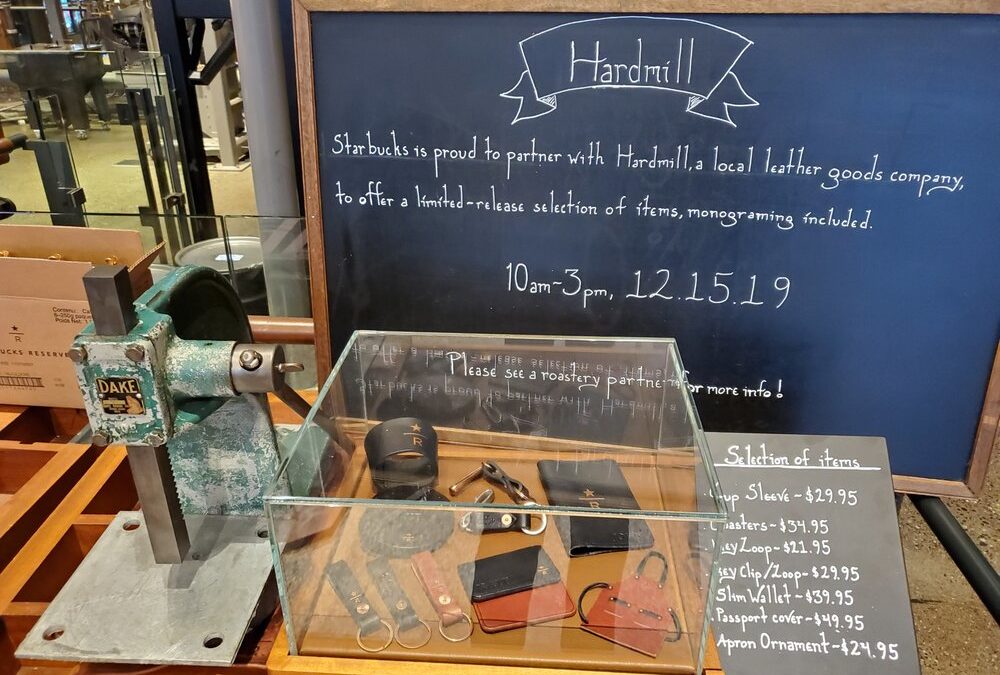 Hardmill
Starbucks is proud to partner with Hardmill, a local leather goods company,
to offer a limited-release selection of items, monograming included.
10am-3pm, 12.15.19
Please see a roastery partner for more info!
Selection of items
Cup Sleeve - $29.95
Coasters - $34.95
Key Loop - $21.95
Key Clip/Loop - $29.95
Slim Wallet - $39.95
Passport cover - $49.95
Apron Ornament - $24.95
DAKE
R
R
R
UCKS RESERVE